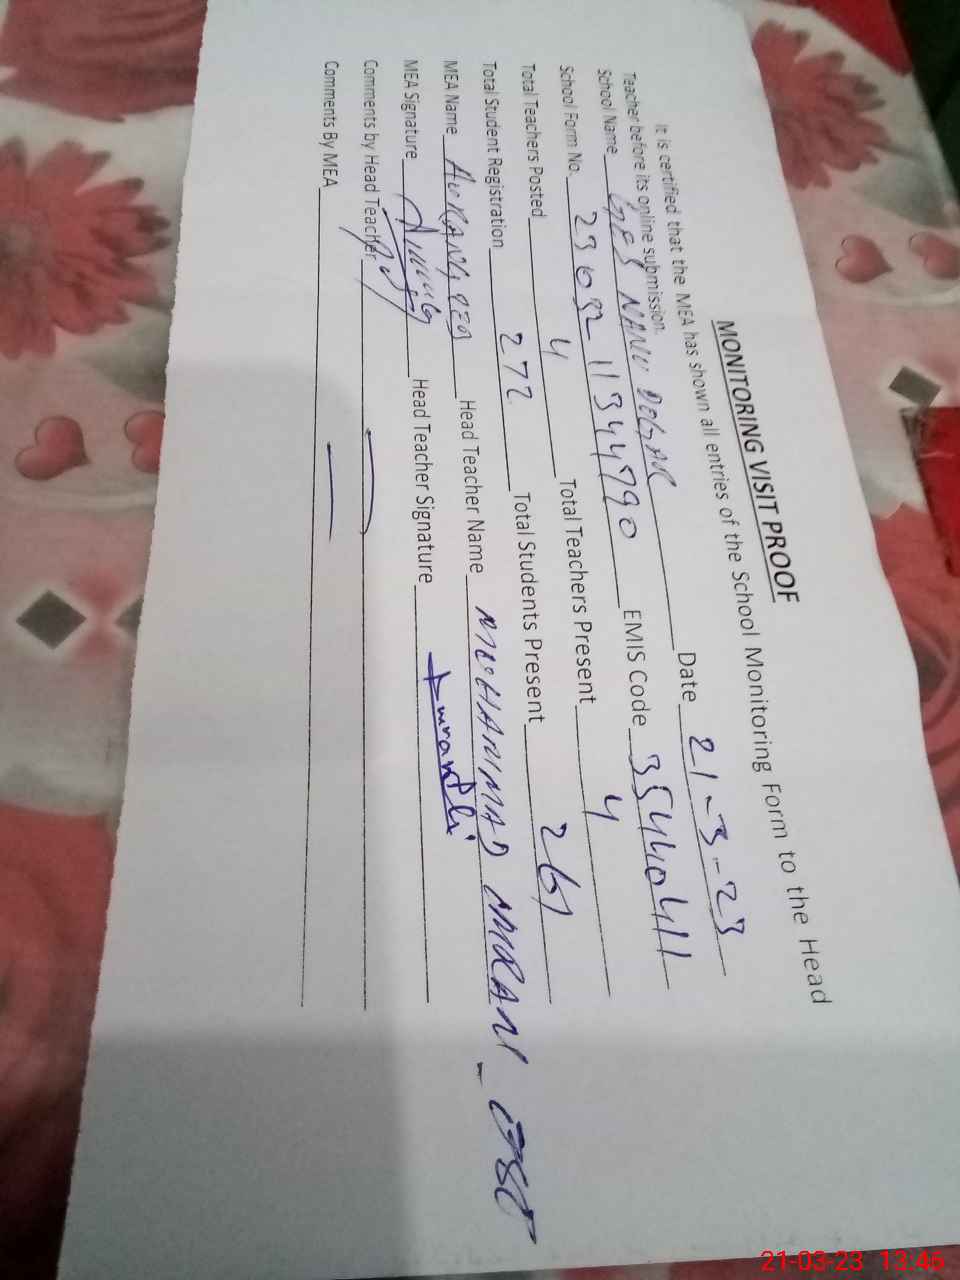 MONITORING VISIT PROOF
It is certified that the MEA has shown all entries of the School Monitoring Form to the Head
Teacher before its online submission.
School Name GPS NANU DOGAR Date 21-3-23
School Form No. 23032113444790 EMIS Code 35440411
Total Teachers Posted 4 Total Teachers Present 4
Total Student Registration 272 Total Students Present 261
MEA Name AURANGZEB Head Teacher Name MUHAMMAD IMRAN - EST
MEA Signature Head Teacher Signature Imran Ali
Comments by Head Teacher
Comments By MEA
21-03-23 13:45